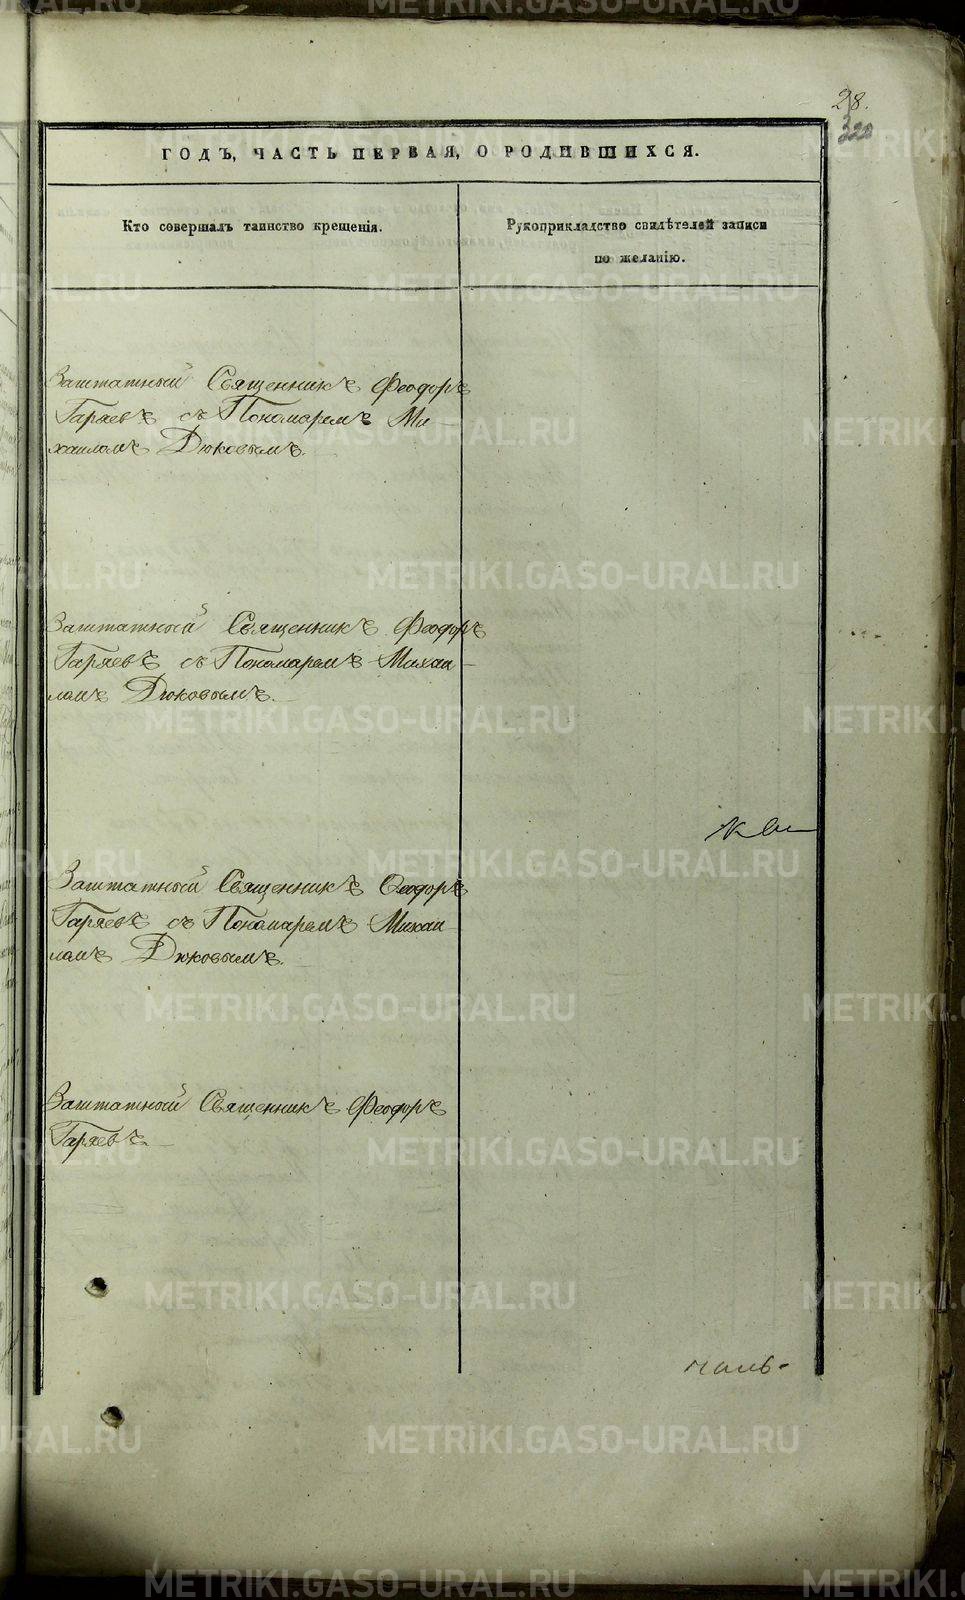 28.
320
ГОДЪ, ЧАСТЬ ПЕРВАЯ, О РОДИВШИХСЯ.
Кто совершалъ таинство крещенія.
Рукоприкладство свидѣтелей записи
по желанію.
Заштатный Священникъ Феодоръ
Гаряевъ съ Пономаремъ Ми-
хаиломъ Дюковымъ.
Заштатный Священникъ Феодоръ
Гаряевъ съ Пономаремъ Михаи-
ломъ Дюковымъ.
Заштатный Священникъ Феодоръ
Гаряевъ съ Пономаремъ Михаи-
ломъ Дюковымъ.
Заштатный Священникъ Феодоръ
Гаряевъ.
METRIKI.GASO-URAL.RU